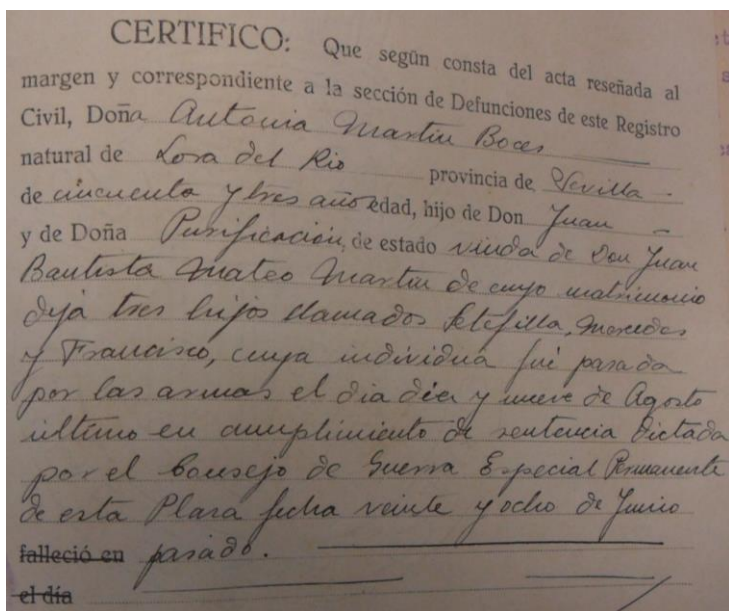 CERTIFICO: Que según consta del acta reseñada al
margen y correspondiente a la sección de Defunciones de este Registro
Civil, Doña Antonia Martin Boces
natural de Lora del Rio provincia de Sevilla
de cincuenta y tres años edad, hijo de Don Juan
y de Doña Purificación, de estado viuda de Don Juan
Bautista Mateo Martin de cuyo matrimonio
deja tres hijos llamados Setefilla, Mercedes
y Francisco, cuya individua fué pasada
por las armas el dia diez y nueve de Agosto
último en cumplimiento de sentencia dictada
por el Consejo de Guerra Especial Permanente
de esta Plaza fecha veinte y ocho de Junio
falleció en pasado.
el día